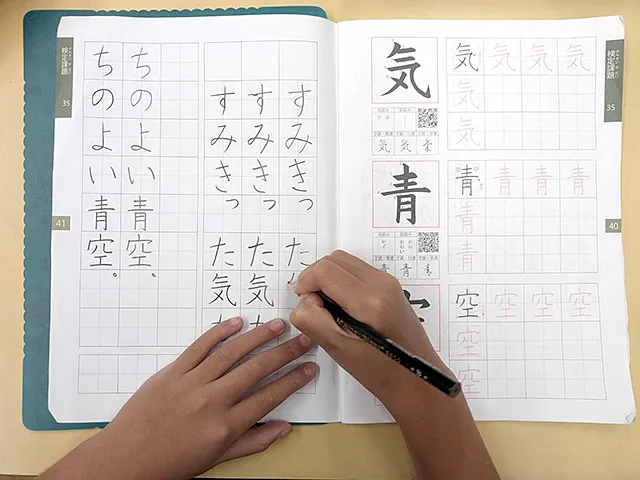 検定課題
35
40
気
気 気 気 気
気
気
気 気 気
青
青 青 青 青
青
青
青 青 青
空 空 空 空
空
空
すみきった
すみきった気
すみきった気
ちのよい青空。
ちのよい青空。
検定課題
35
41